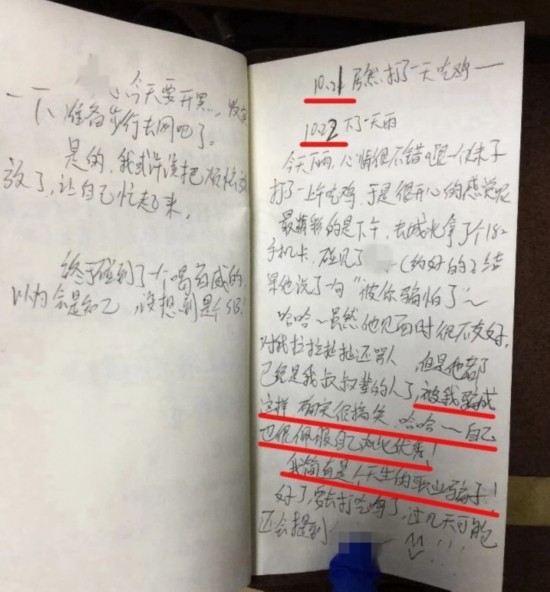 今天要开黑，收拾
一下，准备步行去网吧了。
是的，我或许该把烦恼放
放了，让自己忙起来。
终于碰到了一个喝百威的，
以为会是知己，没想到是个SB！
10.21 居然打了一天吃鸡——
10.22 下了一天雨
今天下雨，心情很不错，跟一个妹子
打了一上午吃鸡，于是很开心的感觉呢
最精彩的是下午，去城北拿了个182
手机卡，碰见了 （约好的）结
果他说了句“被你骗怕了”～
哈哈～虽然他见面时很不友好，
对我拉拉扯扯还骂人 但是他都
已经是我叔叔辈的人了，被我骗成
这样 确实很搞笑，哈哈～自己
也很佩服自己如此优秀！
我简直是个天生的职业骗子！
好了，要去打吃鸡了，过几天可能
还会提到